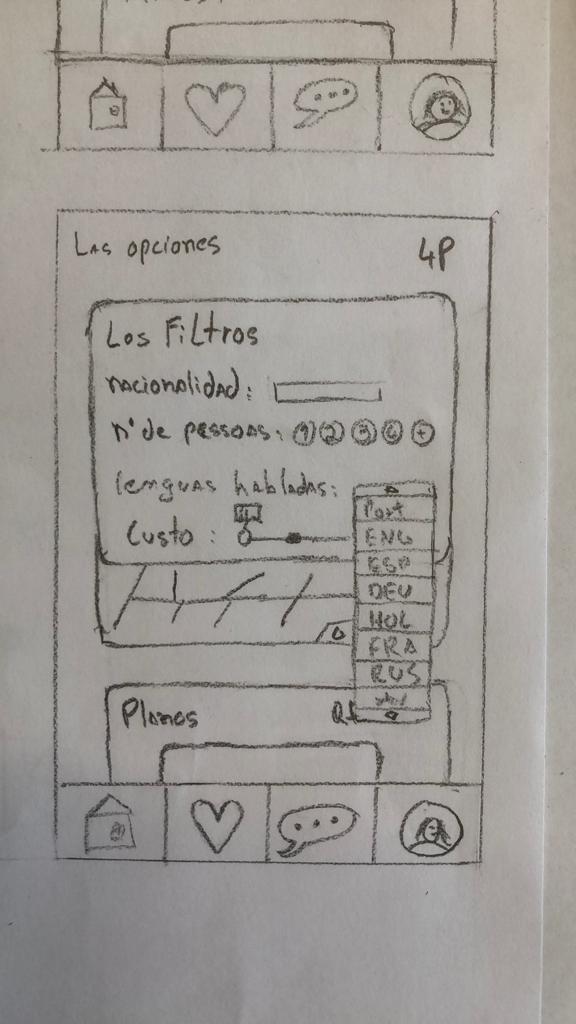 Las opciones 4P
Los Filtros
nacionalidad:
nº de pessoas: 1 2 3 4 +
lenguas habladas:
Custo:
Port
ENG
ESP
DEU
HOL
FRA
RUS
Planos